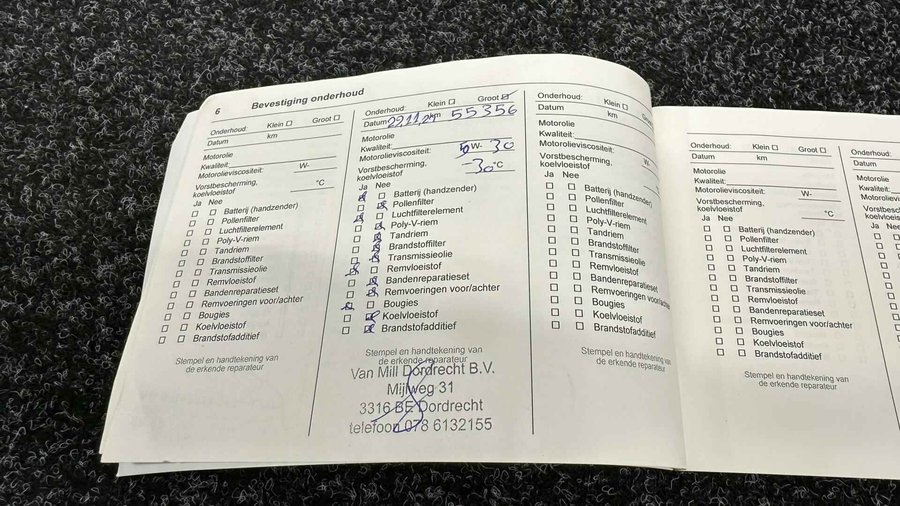 6 Bevestiging onderhoud
Onderhoud: Klein Groot
Datum km
Motorolie
Kwaliteit:
Motorolieviscositeit: W-
Vorstbescherming,
koelvloeistof °C
Ja Nee
Batterij (handzender)
Pollenfilter
Luchtfilterelement
Poly-V-riem
Tandriem
Brandstoffilter
Transmissieolie
Remvloeistof
Bandenreparatieset
Remvoeringen voor/achter
Bougies
Koelvloeistof
Brandstofadditief
Stempel en handtekening van
de erkende reparateur
Onderhoud: Klein Groot
Datum 29,11,21 km 55356
Motorolie
Kwaliteit:
Motorolieviscositeit: W- 30
Vorstbescherming,
koelvloeistof -30 °C
Ja Nee
Batterij (handzender)
Pollenfilter
Luchtfilterelement
Poly-V-riem
Tandriem
Brandstoffilter
Transmissieolie
Remvloeistof
Bandenreparatieset
Remvoeringen voor/achter
Bougies
Koelvloeistof
Brandstofadditief
Stempel en handtekening van
de erkende reparateur
Van Mill Dordrecht B.V.
Mijlweg 31
3316 BE Dordrecht
telefoon 078 6132155
Onderhoud: Klein
Datum km
Motorolie
Kwaliteit:
Motorolieviscositeit: W-
Vorstbescherming,
koelvloeistof
Ja Nee
Batterij (handzender)
Pollenfilter
Luchtfilterelement
Poly-V-riem
Tandriem
Brandstoffilter
Transmissieolie
Remvloeistof
Bandenreparatieset
Remvoeringen voor/achter
Bougies
Koelvloeistof
Brandstofadditief
Stempel en handtekening van
de erkende reparateur
Onderhoud: Klein Groot
Datum km
Motorolie
Kwaliteit:
Motorolieviscositeit: W-
Vorstbescherming,
koelvloeistof °C
Ja Nee
Batterij (handzender)
Pollenfilter
Luchtfilterelement
Poly-V-riem
Tandriem
Brandstoffilter
Transmissieolie
Remvloeistof
Bandenreparatieset
Remvoeringen voor/achter
Bougies
Koelvloeistof
Brandstofadditief
Stempel en handtekening van
de erkende reparateur
Onderhoud:
Datum
Motorolie
Kwaliteit:
Ja Nee